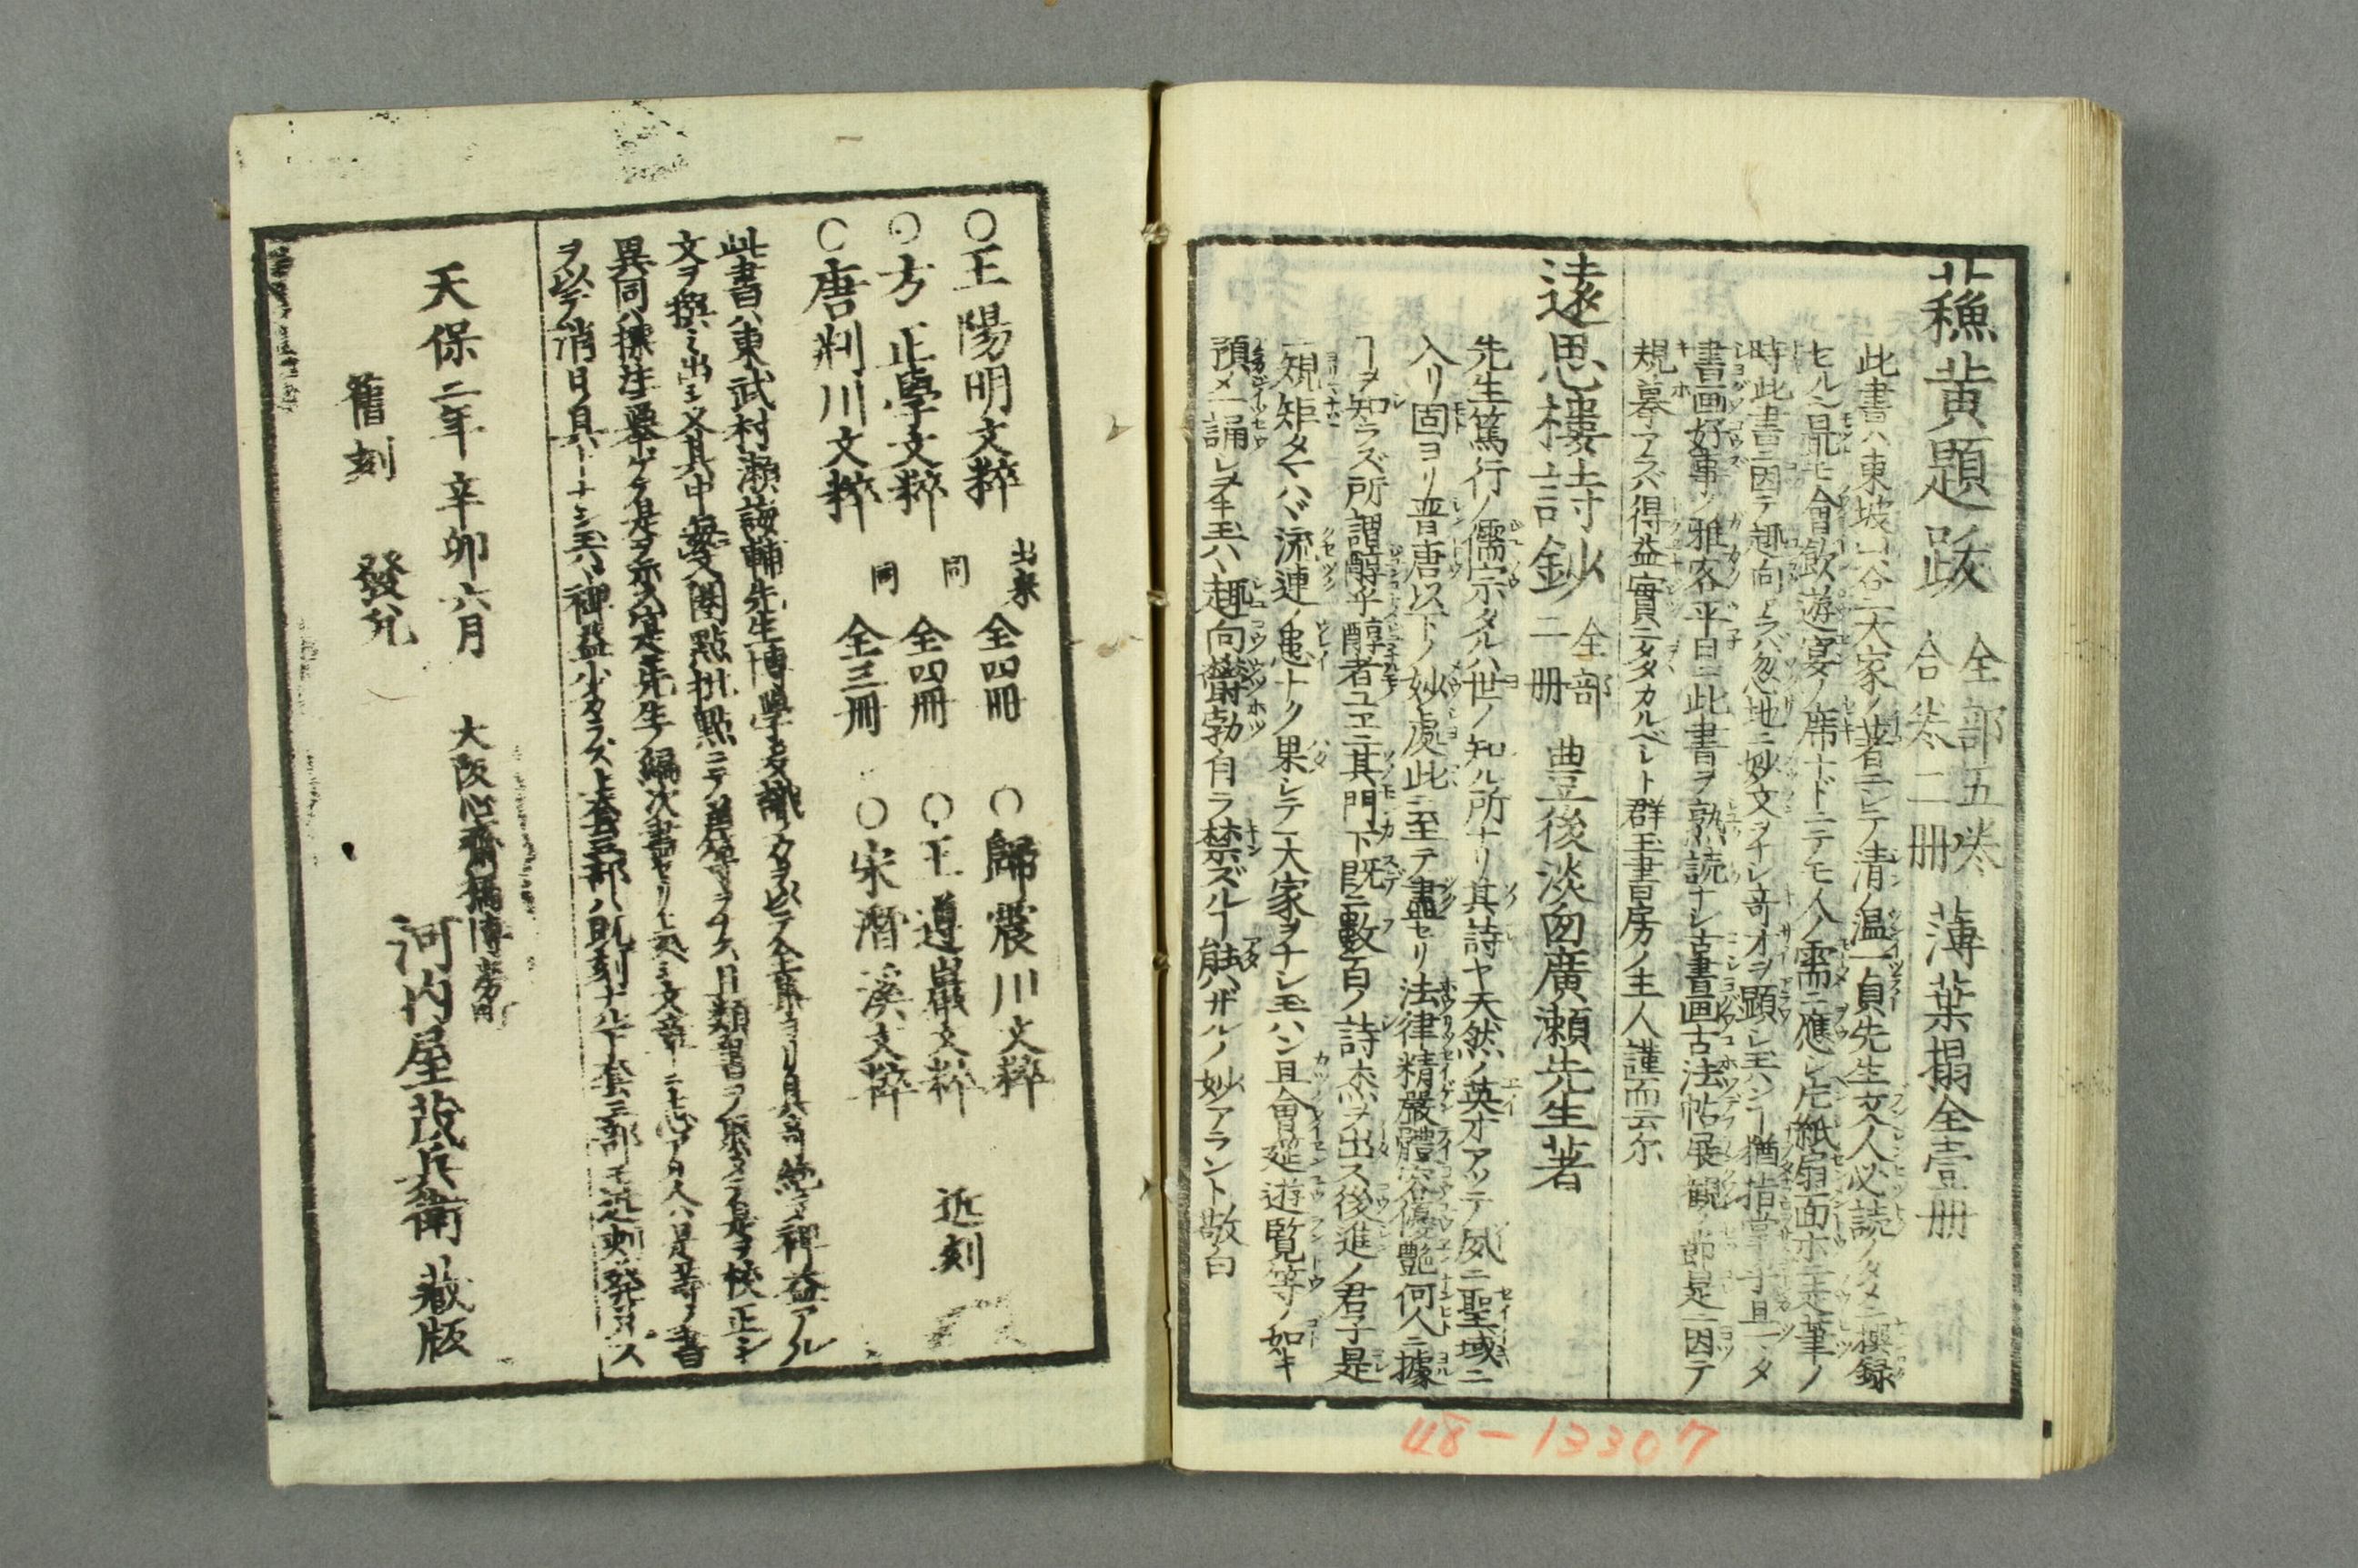 蘓黄題跋 全部五巻 合巻二冊 薄葉摺全壹冊
此書ハ東坡山谷二大家ノ著ニシテ清ノ温一貞先生文人必読ノタメニ撰録
セルシ最モ會飲遊宴ノ席ナドニテモ人ノ需ニ應シ片紙扇面ホニ走筆ノ
時此書ニ因テ趣向セラバ忽地ニ妙文ヲイレ奇才ヲ顕レ玉ハンヿ猶指掌ノ于且ツタ
書画好事ノ雅客平日ニ此書ヲ熟読ナシ古書画古法帖展観ノ節是ニ因テ
規摹アラバ得益實ニタタカルベシト群玉書房ノ主人謹而云尓
遠思樓詩鈔 全部二冊 豊後淡窓廣瀬先生著
先生篤行ノ儒宗タルハ世ノ知ル所ナリ其詩ヤ天然ノ英才アッテ夙ニ聖域ニ
入リ固ヨリ晋唐以下ノ妙處此ニ至テ盡セリ法律精嚴體容優艶何人ニ據
ヿヲ知ラズ所謂醇乎醇者ユヱニ其門下既ニ數百ノ詩杰ヲ出ス後進ノ君子是
規矩タマハバ流連ノ患ナク果シテ大家ヲナシ玉ハン且會筵遊覧等ノ如キ
預メ一誦シヲキ玉ハヽ趣向欝勃自ラ禁ズルヿ能ハザルノ妙アラント敬白
48-13307
○王陽明文粹 出来 全四冊 ○歸震川文粹
○方正學文粹 同 全四冊 ○王遵巖文粹 近刻
○唐荆川文粹 同 全三冊 ○宋潛溪文粹
此書ハ東武村瀬誨輔先生博學多識ノ力ヲ以テ全集ヨリ具ハ奇絶ノ裨益アル
文ヲ撰ミ出シ又其中緊要ハ圏點批點ニテ差等ヲナス且類書ヲ聚メテ是ヲ校正シ
異同ハ標注ニ擧ゲテ是ヲ示ス寔ニ先生ノ編次書セリ
ヲ以テ消日ノ具トナシ玉ハヽ御益少カラズ上套三部ハ既刻ナル下套三部モ近刻發行ス
天保二年辛卯六月
舊刻 發兌
大阪心齋橋博労町
河内屋茂兵衛藏版